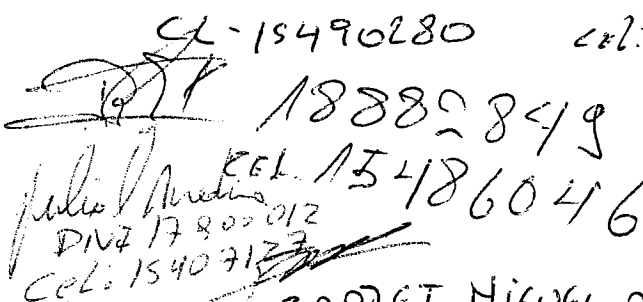 CL-15490280 cel:
18882849
CEL. 15486046
Julio
DNI 17800012
Cel: 15407127
MIGUEL